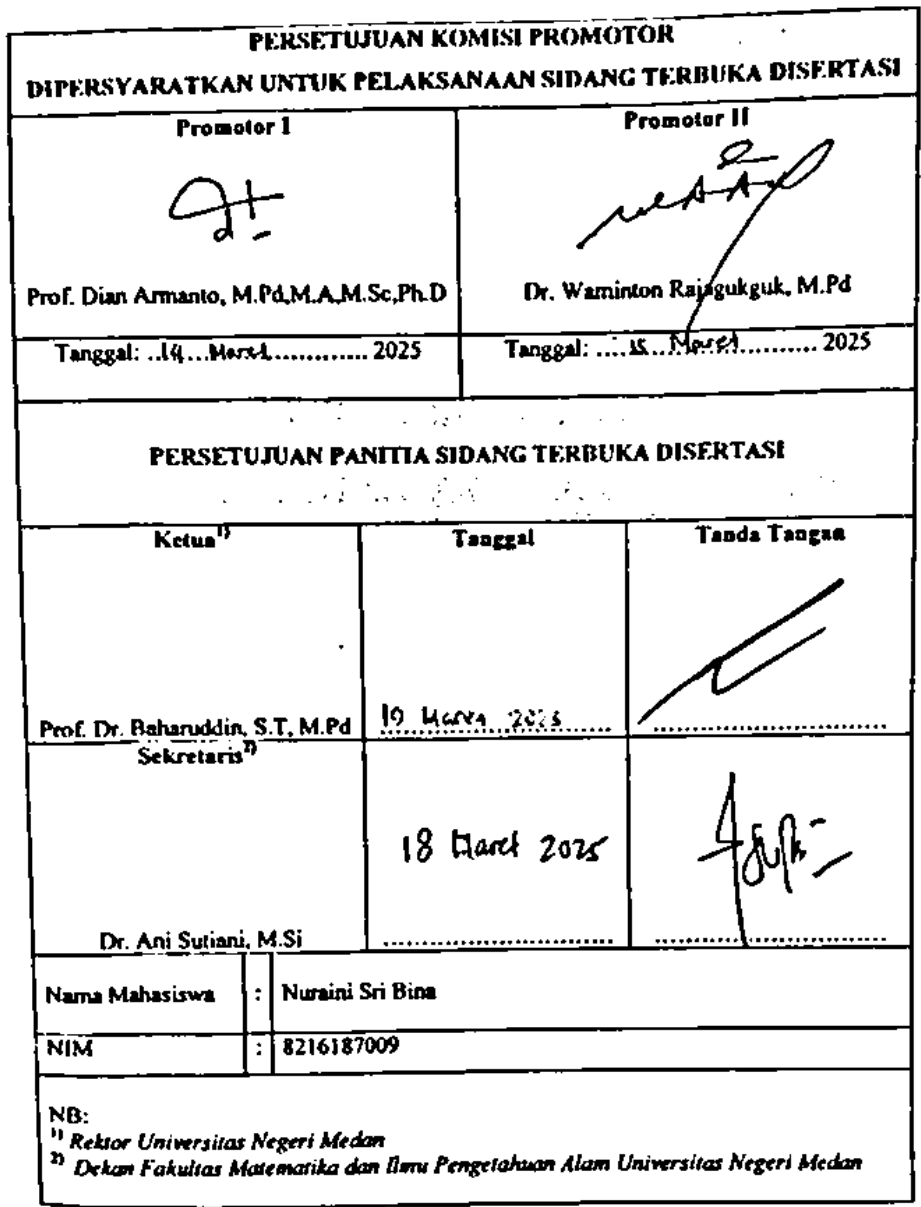 PERSETUJUAN KOMISI PROMOTOR
DIPERSYARATKAN UNTUK PELAKSANAAN SIDANG TERBUKA DISERTASI
Promotor I
Promotor II
Prof. Dian Armanto, M.Pd,M.A,M.Sc,Ph.D
Dr. Waminton Rajagukguk, M.Pd
Tanggal: ..14...Maret............. 2025
Tanggal: .....15...Maret........... 2025
PERSETUJUAN PANITIA SIDANG TERBUKA DISERTASI
Ketua1)
Tanggal
Tanda Tangan
Prof. Dr. Baharuddin, S.T, M.Pd
19 Maret 2025
Sekretaris2)
18 Maret 2025
Dr. Ani Sutiani, M.Si
Nama Mahasiswa : Nuraini Sri Bina
NIM : 8216187009
NB:
1) Rektor Universitas Negeri Medan
2) Dekan Fakultas Matematika dan Ilmu Pengetahuan Alam Universitas Negeri Medan